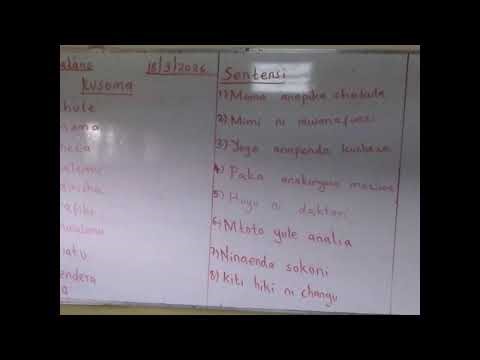 18/3/2026
Kusoma
hule
heza
afiki
iatu
endera
Sentensi
1) Mama anapika chakula
2) Mimi ni mwanafunzi
3) Yeye anapenda kucheza
4) Paka anakunywa maziwa
5) Huyu ni daktari
6) Mtoto yule analia
7) Ninaenda sokoni
8) Kiti hiki ni changu